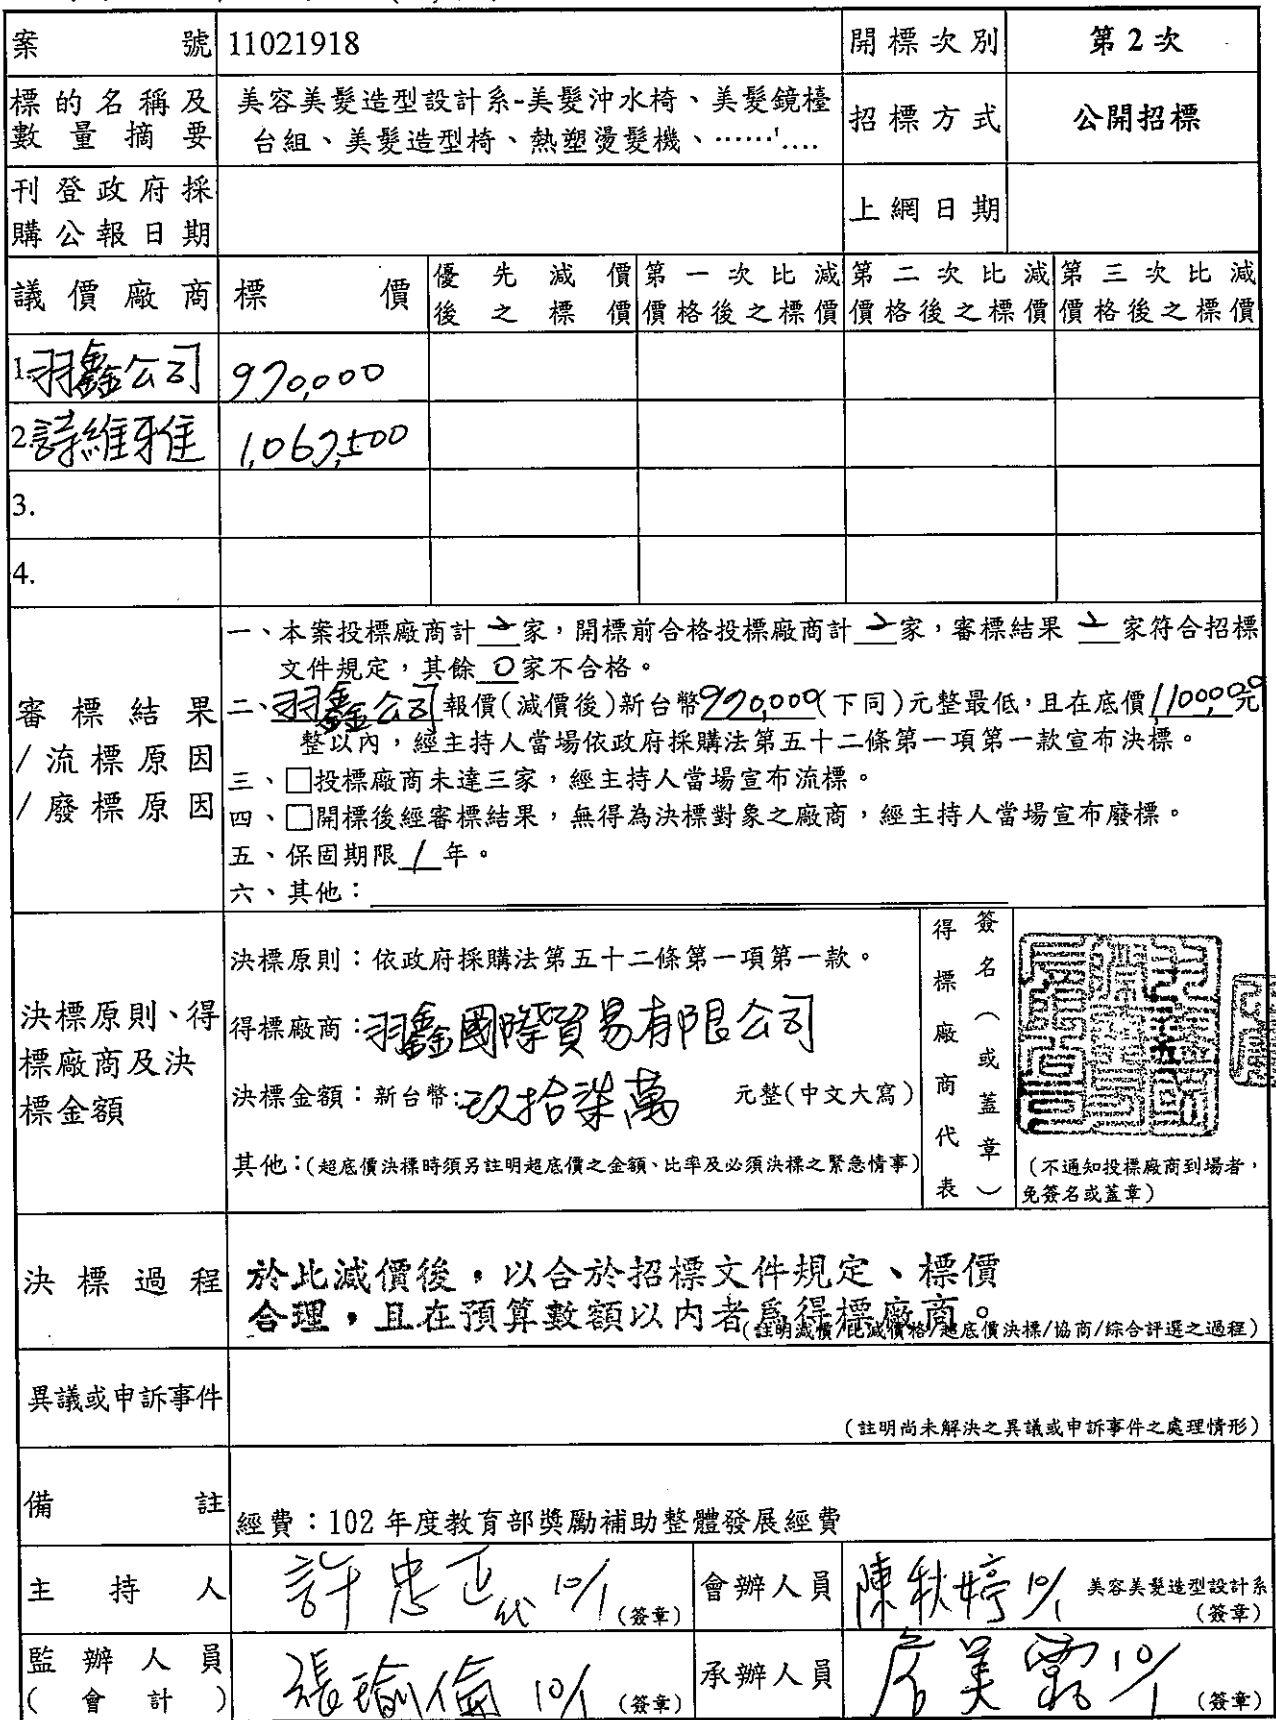 案號 11021918 開標次別 第2次
標的名稱及數量摘要 美容美髮造型設計系-美髮沖水椅、美髮鏡檯
台組、美髮造型椅、熱塑燙髮機、…… 招標方式 公開招標
刊登政府採
購公報日期 上網日期
議價廠商 標價 優先減價後之標價 第一次比減價格後之標價 第二次比減價格後之標價 第三次比減價格後之標價
1.羽鑫公司 970,000
2.詩維雅 1,067,500
3.
4.
審標結果
/流標原因
/廢標原因
一、本案投標廠商計 2 家,開標前合格投標廠商計 2 家,審標結果 2 家符合招標
文件規定,其餘 0 家不合格。
二、羽鑫公司報價(減價後)新台幣970,000(下同)元整最低,且在底價1,100,000元
整以內,經主持人當場依政府採購法第五十二條第一項第一款宣布決標。
三、□投標廠商未達三家,經主持人當場宣布流標。
四、□開標後經審標結果,無得為決標對象之廠商,經主持人當場宣布廢標。
五、保固期限 1 年。
六、其他:
決標原則、得
標廠商及決
標金額
決標原則:依政府採購法第五十二條第一項第一款。
得標廠商:羽鑫國際貿易有限公司
決標金額:新台幣:玖拾柒萬 元整(中文大寫)
其他:(超底價決標時須另註明超底價之金額、比率及必須決標之緊急情事)
得標廠商代表
簽名(或蓋章)
(不通知投標廠商到場者,
免簽名或蓋章)
決標過程 於比減價後,以合於招標文件規定、標價
合理,且在預算數額以內者為得標廠商。
(註明減價/比減價格/超底價決標/協商/綜合評選之過程)
異議或申訴事件
(註明尚未解決之異議或申訴事件之處理情形)
備註 經費:102年度教育部獎勵補助整體發展經費
主持人 許忠正代 10/1 (簽章) 會辦人員 陳秋婷 10/1 美容美髮造型設計系
(簽章)
監辦人員
(會計) 張瑜倫 10/1 (簽章) 承辦人員 美 10/1 (簽章)